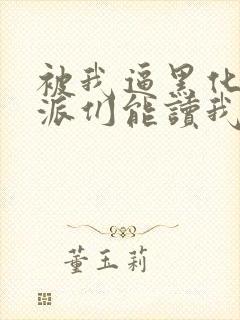 被我逼黑化
派们能讀我
董玉莉